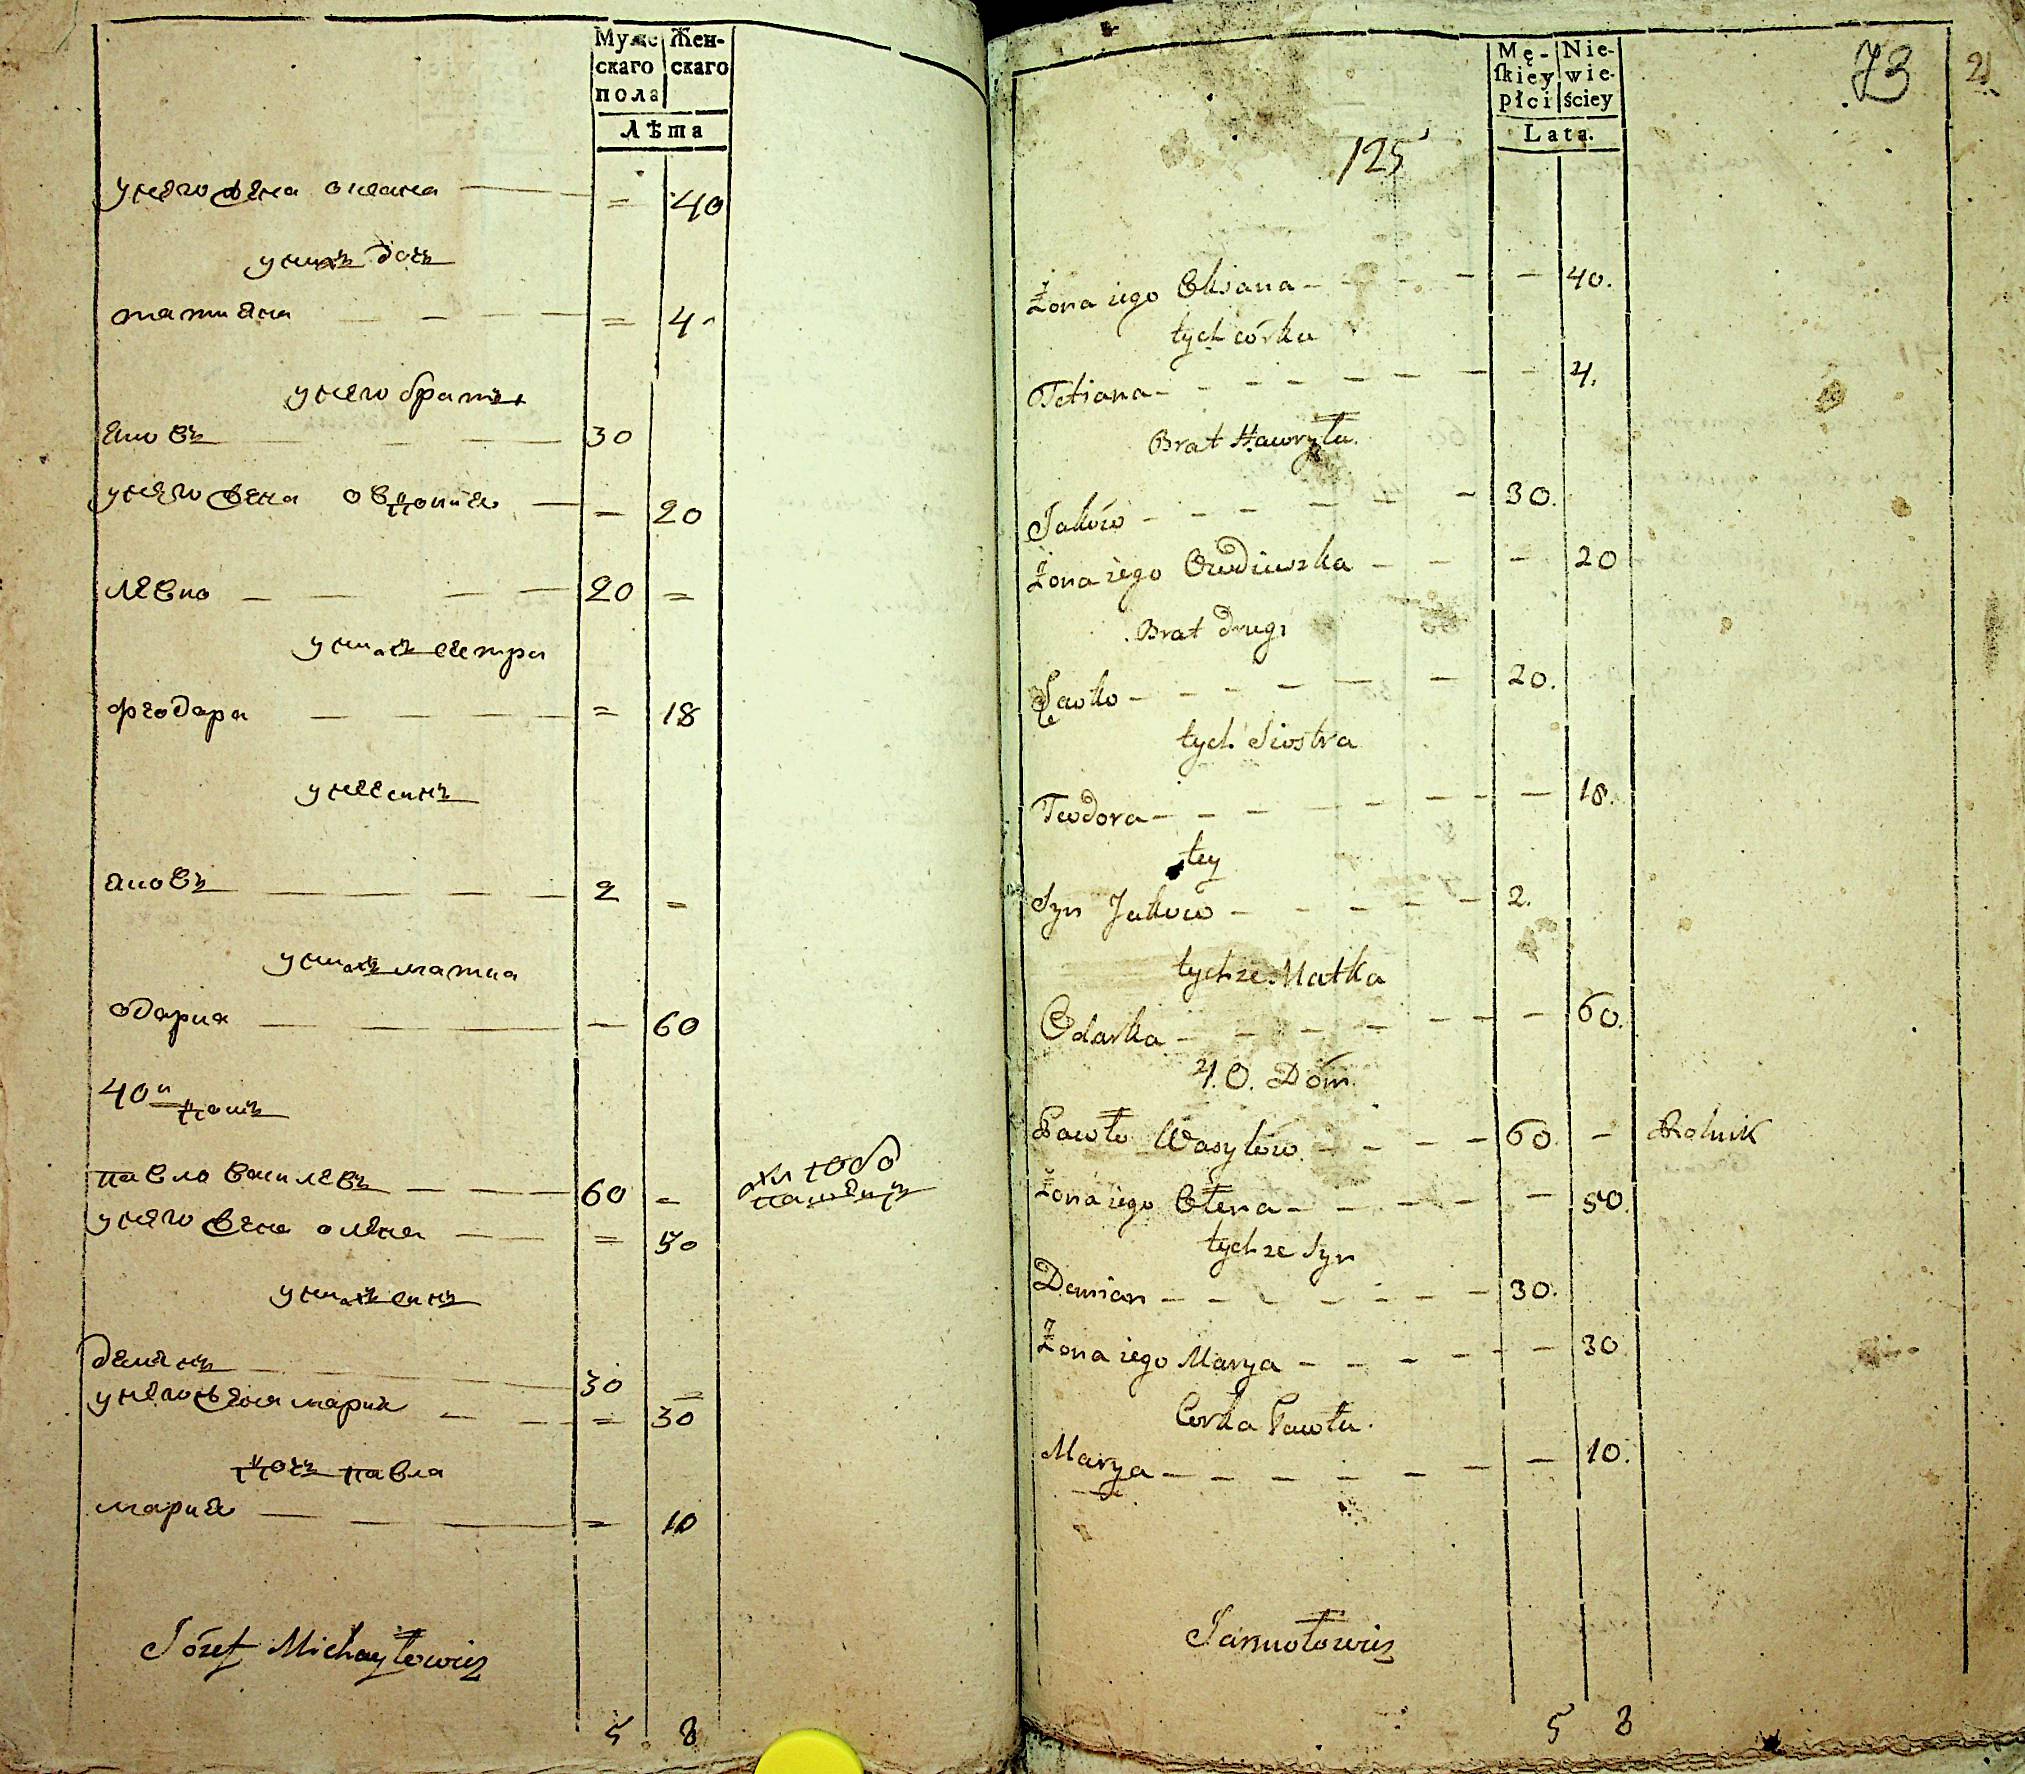 Мужс Жен-
скаго скаго
пола
Лѣта
унего жена оксана — = 40
унихъ дочъ
татиана — — — = 4
унего братъ
яковъ — — — 30
унего жена овдокия — = 20
левко — — — 20 =
унихъ сестра
феодора — — — = 18
унее синъ
яковъ — — — 2 =
унихъ матка
одарка — — — 60
40й домъ
павло василевъ — — 60 =
унего жена олена — = 50
унихъ синъ
демянъ — 30 =
унего жена мария — = 30
дочъ павла
мария — — — = 10
Józef Michayłowicz
5 8
Mę- Nie-
skiey wie-
płci ściey
Lata.
73
125
Żona iego Oksana — 40.
tych córka
Tetiana — 4.
Brat Hawryła.
Jaków — 30.
Żona iego — 20
Brat drugi
Lewko — 20.
tych Siostra
Teodora — 18.
tey
Syn Jakow — 2.
tychże Matka
Odarka — 60.
40. Dóm.
Pawło Wasylów — 60. — Rolnik
Żona iego Ołena — 50.
tychże Syn
Demian — 30.
Żona iego Marya — 30
Corka Pawła.
Marya — 10.
Jarmołowicz
5 8